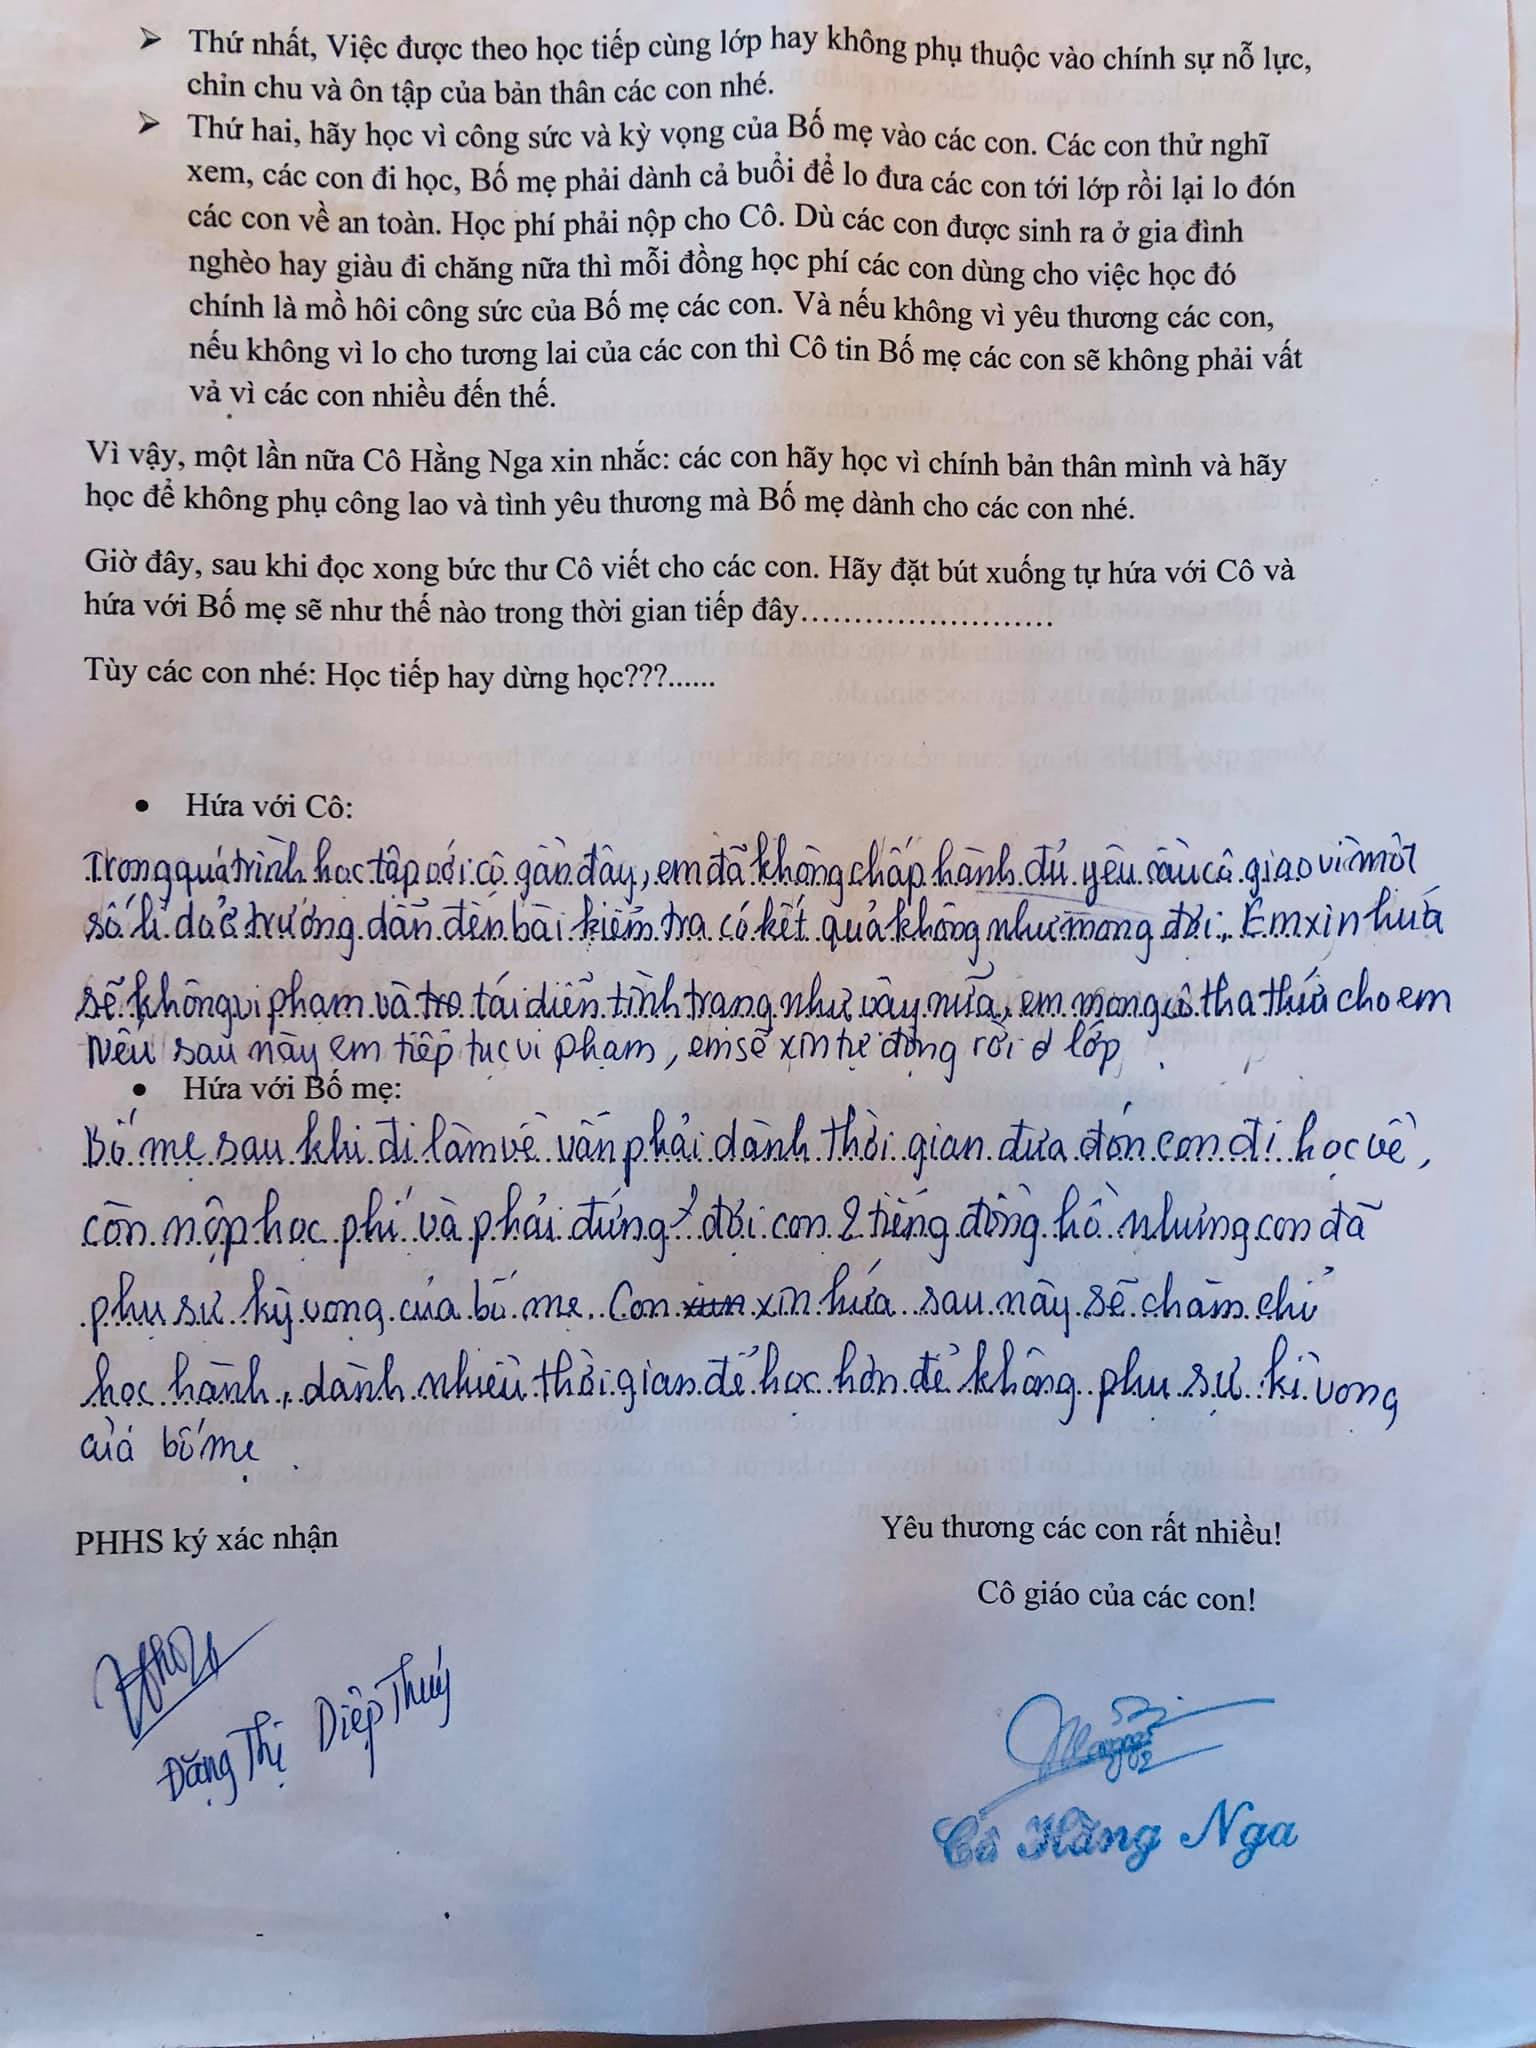 ➢ Thứ nhất, Việc được theo học tiếp cùng lớp hay không phụ thuộc vào chính sự nỗ lực,
chỉn chu và ôn tập của bản thân các con nhé.
➢ Thứ hai, hãy học vì công sức và kỳ vọng của Bố mẹ vào các con. Các con thử nghĩ
xem, các con đi học, Bố mẹ phải dành cả buổi để lo đưa các con tới lớp rồi lại lo đón
các con về an toàn. Học phí phải nộp cho Cô. Dù các con được sinh ra ở gia đình
nghèo hay giàu đi chăng nữa thì mỗi đồng học phí các con dùng cho việc học đó
chính là mồ hôi công sức của Bố mẹ các con. Và nếu không vì yêu thương các con,
nếu không vì lo cho tương lai của các con thì Cô tin Bố mẹ các con sẽ không phải vất
vả vì các con nhiều đến thế.
Vì vậy, một lần nữa Cô Hằng Nga xin nhắc: các con hãy học vì chính bản thân mình và hãy
học để không phụ công lao và tình yêu thương mà Bố mẹ dành cho các con nhé.
Giờ đây, sau khi đọc xong bức thư Cô viết cho các con. Hãy đặt bút xuống tự hứa với Cô và
hứa với Bố mẹ sẽ như thế nào trong thời gian tiếp đây........................
Tùy các con nhé: Học tiếp hay dừng học???......
• Hứa với Cô:
Trong quá trình học tập với cô gần đây, em đã không chấp hành đủ yêu cầu cô giao vì một
số lí do ở trường dẫn đến bài kiểm tra có kết quả không như mong đợi. Em xin hứa
sẽ không vi phạm và tái diễn tình trạng như vậy nữa, em mong cô tha thứ cho em
Nếu sau này em tiếp tục vi phạm, em sẽ xin tự động rời ở lớp
• Hứa với Bố mẹ:
Bố mẹ sau khi đi làm về vẫn phải dành thời gian đưa đón con đi học về,
còn nộp học phí và phải đứng đợi con 2 tiếng đồng hồ nhưng con đã
phụ sự kỳ vọng của bố mẹ. Con xin hứa sau này sẽ chăm chỉ
học hành, dành nhiều thời gian để học hơn để không phụ sự kì vọng
của bố mẹ
PHHS ký xác nhận
Yêu thương các con rất nhiều!
Cô giáo của các con!
Đặng Thị Diệp Thuý
Cô Hằng Nga